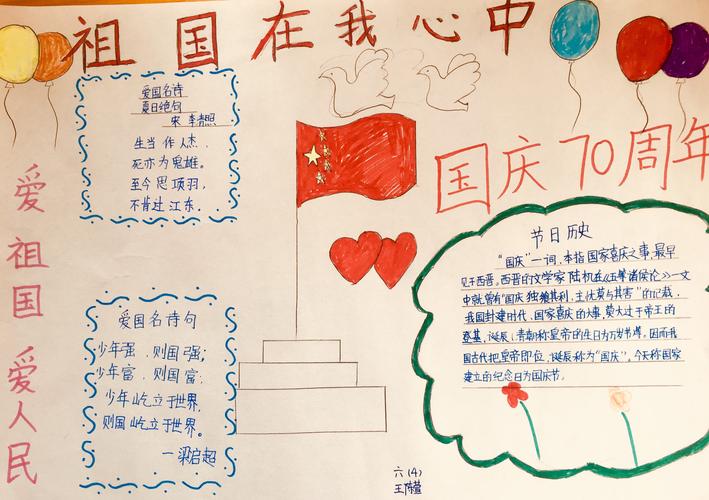 祖国在我心中
爱国名诗
夏日绝句
宋 李清照
生当作人杰，
死亦为鬼雄。
至今思项羽，
不肯过江东。
国庆70周年
爱祖国 爱人民
节日历史
"国庆"一词，本指国家喜庆之事，最早
见于西晋。西晋的文学家陆机在《五等诸侯论》一文
中就曾有"国庆独飨其利，主忧莫与其害"的记载，
我国封建时代、国家喜庆的大事，莫大过于帝王的
登基、诞辰（清朝称皇帝的生日为万岁节）。因而我
国古代把皇帝即位、诞辰称为"国庆"。今天称国家
建立的纪念日为国庆节。
爱国名诗句
少年强，则国强；
少年富，则国富；
少年屹立于世界，
则国屹立于世界。
—梁启超
六(4)